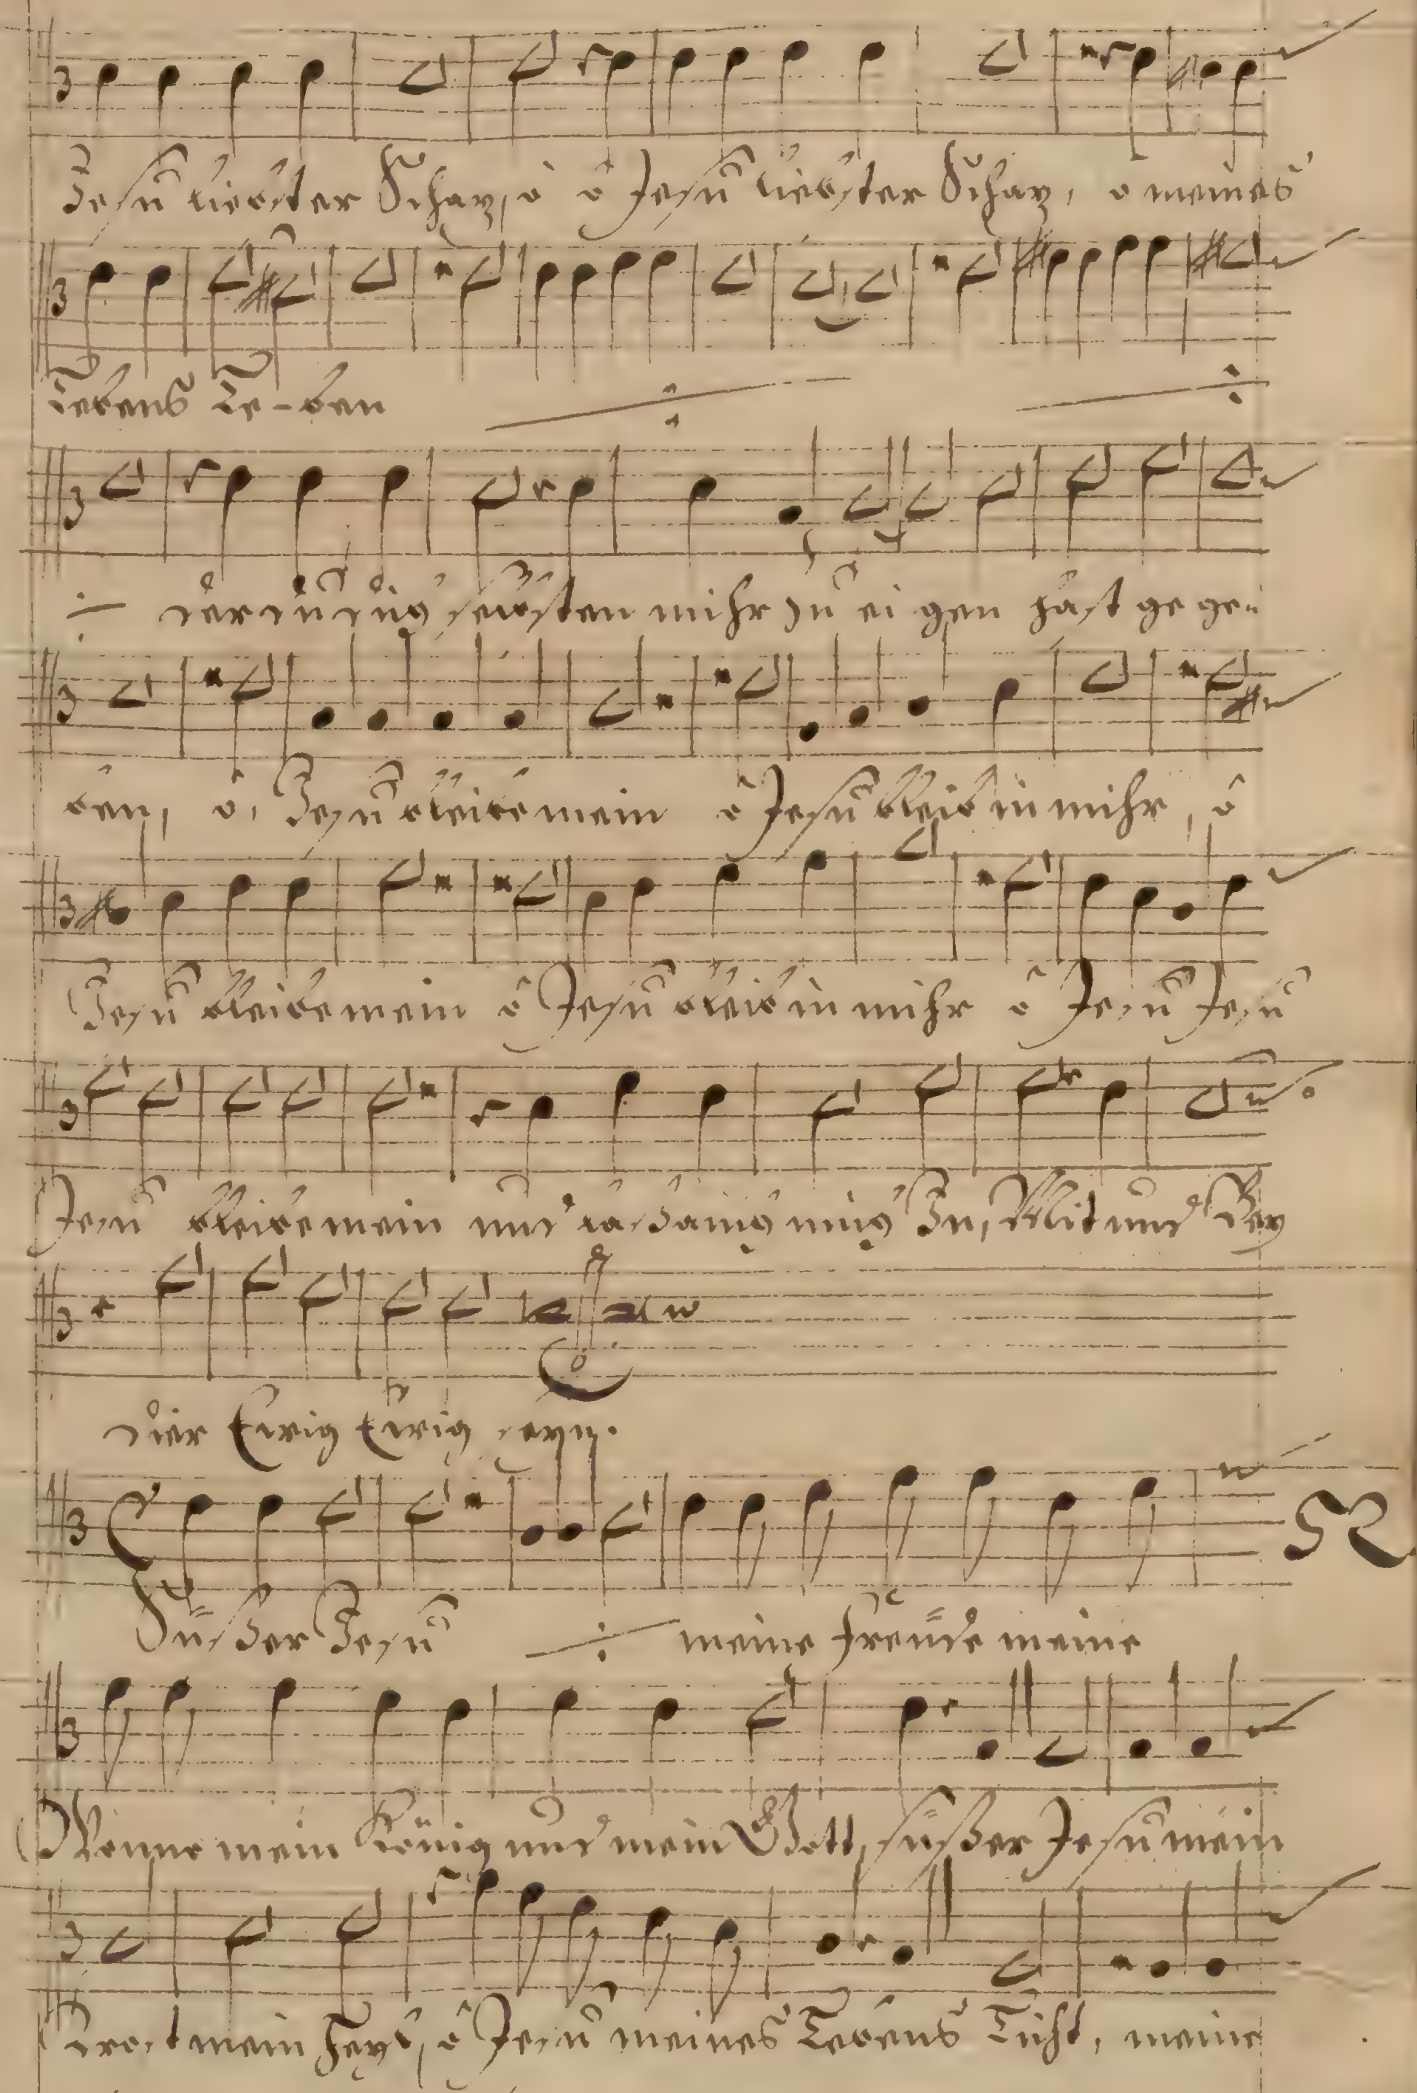 Jesu liebster Schaz, ô ô Jesu liebster Schaz, o meines
Lebens Le-ben
der du dich selbsten mihr zu ei gen hast gege-
ben, ô, Jesu bleibe mein ô Jesu bleib in mihr, ô
Jesu bleibe mein ô Jesu bleib in mihr ô Jesu Jesu
Jesu bleibe mein und laß auch mich In, Mit und Bey
dier Ewig Ewig seyn.
52
Süßer Jesu meine Freude meine
Wonne mein König und mein Gott, süßer Jesu mein
Trost mein Heyl, ô Jesu meines Lebens Licht, meine